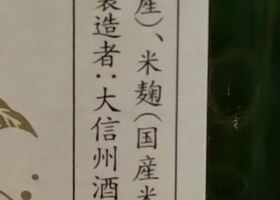 産)、米麹(国産米
製造者:大信州酒